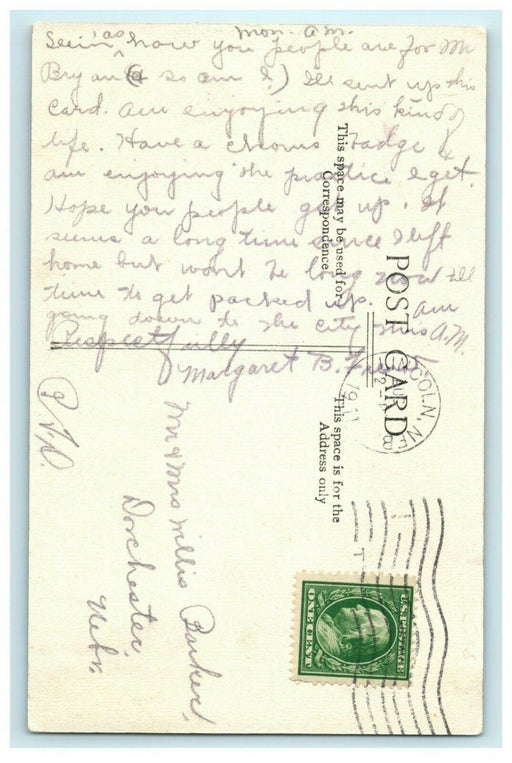 Mon. A.M.
Seein' as how you people are for Mr
Bryan (& so am I) I'll send up this
card. Am enjoying this kind of
life. Have a chorus badge &
am enjoying the practice I get.
Hope you people go up. It
seems a long time since I left
home but won't be long now till
time to get packed up. I am
going down to the city this A.M.
Respectfully
Margaret B.
Mr & Mrs Willis Parker,
Dorchester
Nebr.
POST CARD
This space may be used for
Correspondence
This space is for the
Address only
LINCOLN, NE
1911
ONE CENT